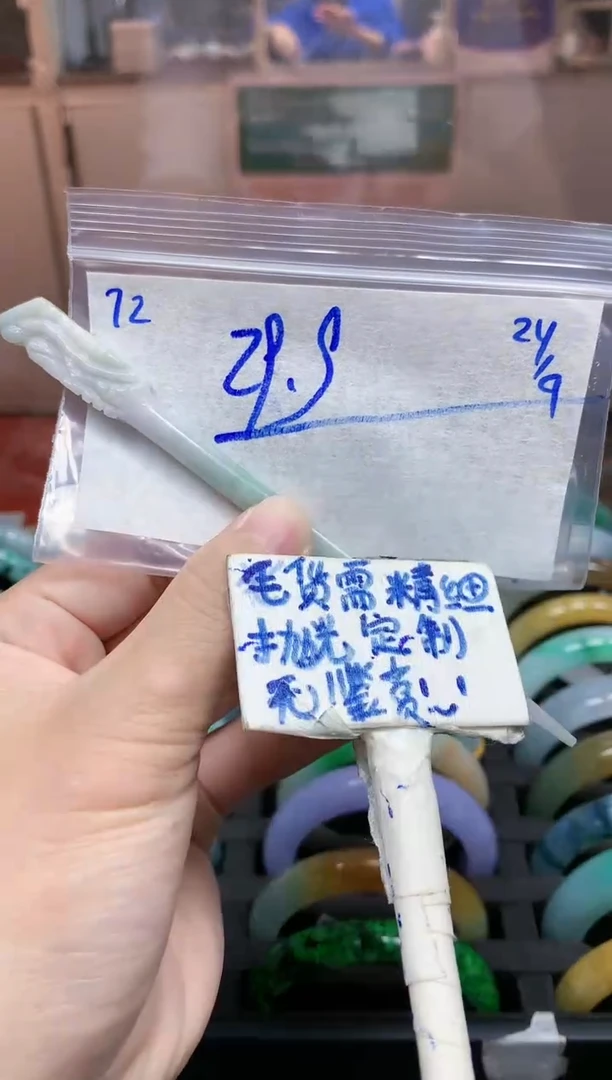 72
29.5
24/9
毛货需精细
抛光定制
无鉴赏